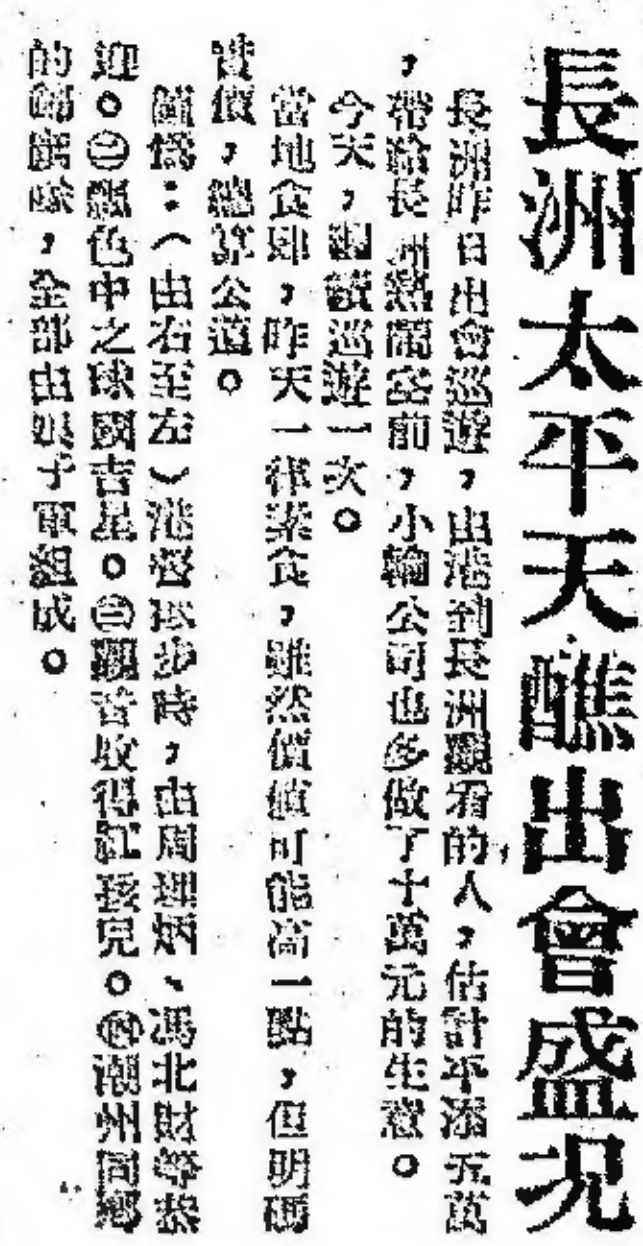 長洲太平天醮出會盛況
長洲昨日出會巡遊,由港到長洲觀看的人,估計平添五萬
,帶給長洲熱鬧空前,小輪公司也多做了十萬元的生意。
今天,繼續巡遊一次。
當地食肆,昨天一律素食,雖然價值可能高一點,但明碼
實價,總算公道。
圖為:(由右至左)港督 步時,由周理炳、馮北財等恭
迎。㊁飄色中之球國吉星。㊂觀音收得紅孩兒。㊃潮州同鄉
的鑼鼓隊,全部由娘子軍組成。